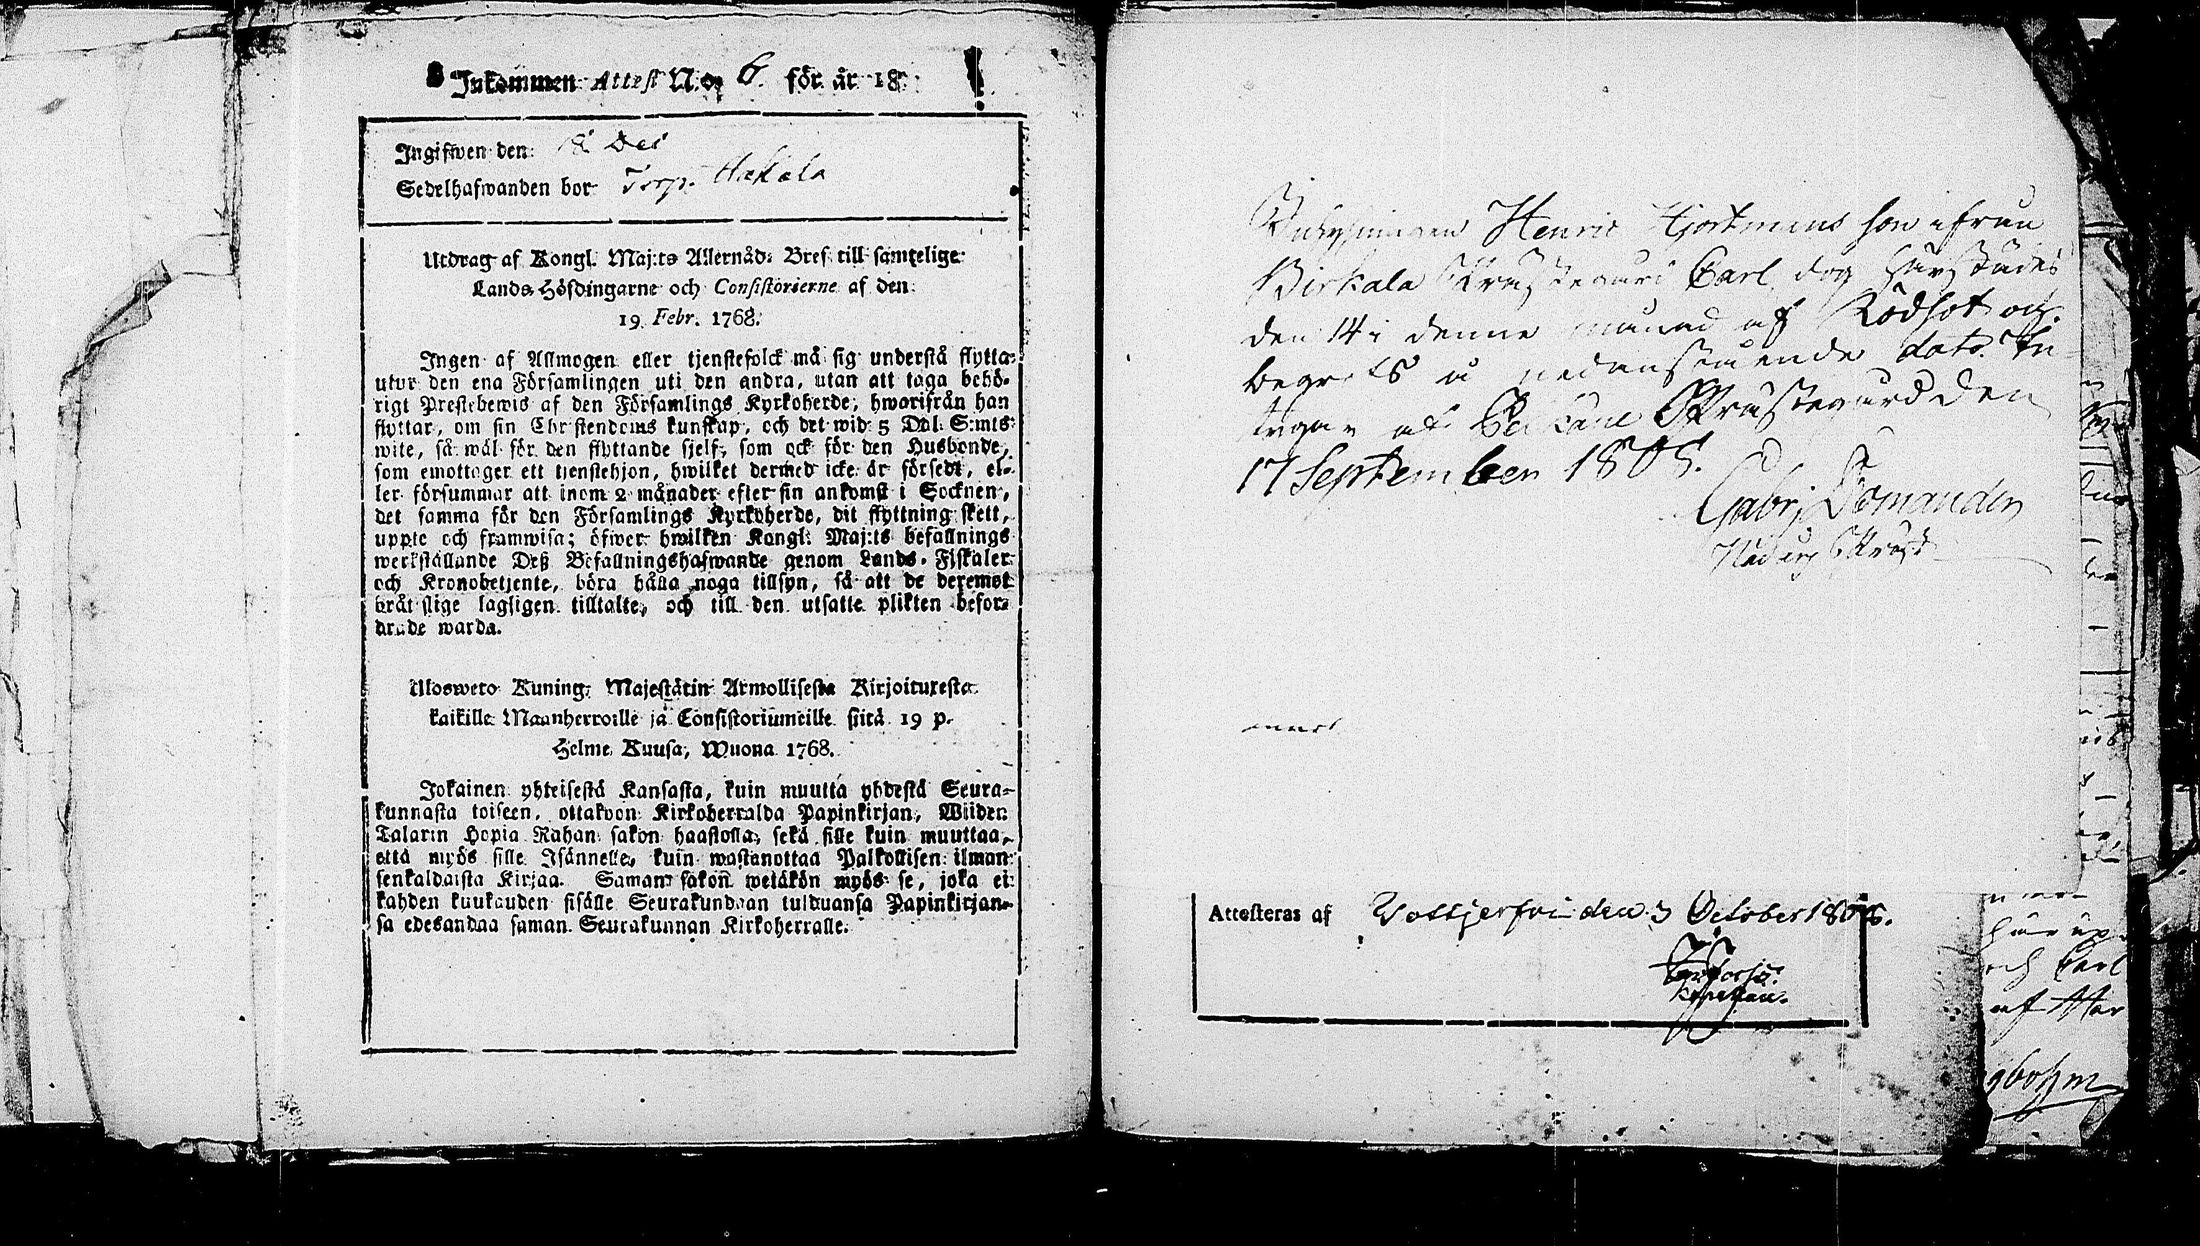 Inkommen Attest N:o 6. för år 18
Ingifwen den: 18 Dec
Sedelhafwanden bor Torp. Hakala
Utdrag af Kongl. Maj:ts Allernåd: Bref till samtelige
Lands-Höfdingarne och Consistorierne af den
19 Febr. 1768.
Ingen af Allmogen eller tjenstefolck må sig understå flytta
utur den ena Församlingen uti den andra, utan att taga behö-
rigt Prestebewis af den Församlings Kyrkoherde, hwarifrån han
flyttar, om sin Christendoms kunskap, och det wid 5 Dal. S:mts
wite, så wäl för den flyttande sjelf, som ock för den Husbonde,
som emottager ett tjenstehjon, hwilket dermed icke är försedt, el-
ler försummar att inom 2 månader efter sin ankomst i Socknen,
det samma för den Församlings Kyrkoherde, dit flyttning skett,
uppte och framwisa; öfwer hwilken Kongl: Maj:ts befallnings
werkställande Deß Befallningshafwande genom Lands-Fiskaler
och Kronobetjente, böra hålla noga tillsyn, så att de deremot
bråtslige lagligen tilltalte, och till den utsatte plikten befor-
drade warda.
Ulosweto Kuning: Majestätin Armollisesta Kirjoituxesta
kaikille Maanherroille ja Consistoriumeille siitä 19 p.
Helme Kuusa, Wuona 1768.
Jokainen yhteisestä Kansasta, kuin muutta yhdestä Seura-
kunnasta toiseen, ottakoon Kirkoherralda Papinkirjan, Wiiden
Talarin Hopia Rahan sakon haastolla, sekä sille kuin muuttaa,
että myös sille Isännelle, kuin wastanottaa Palkollisen ilman
senkaldaista Kirjaa. Saman sakon wetäkön myös se, joka ei
kahden kuukauden sisälle Seurakundaan tulduansa Papinkirjan-
sa edesandaa saman Seurakunnan Kirkoherralle.
Henric Hjortmans son ifrån
Birkala Carl dog härstädes
den 14 i denne månad af Rödsot och
begrofs å nedanstående dato.
Prästegård den
17 September 1808.
Gabr
Attesteras af den 3 October 1808.
Kapellan.
och Carl
af